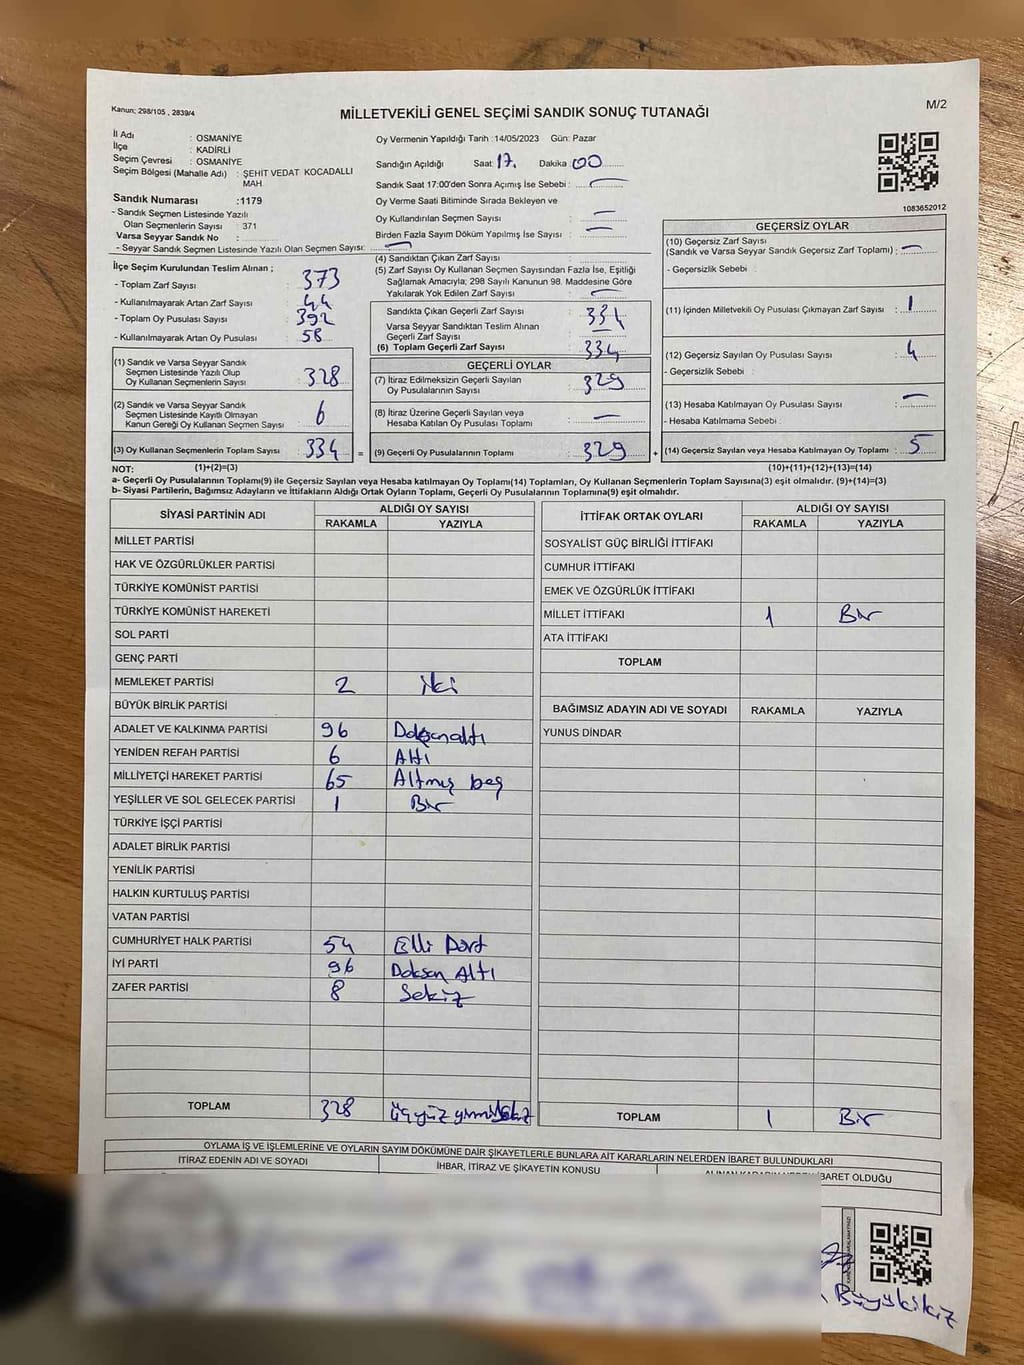 Kanun; 298/105 , 2839/4
MİLLETVEKİLİ GENEL SEÇİMİ SANDIK SONUÇ TUTANAĞI
M/2
İl Adı : OSMANİYE
İlçe : KADİRLİ
Seçim Çevresi : OSMANİYE
Seçim Bölgesi (Mahalle Adı) : ŞEHİT VEDAT KOCADALLI
MAH
Sandık Numarası :1179
- Sandık Seçmen Listesinde Yazılı
Olan Seçmenlerin Sayısı : 371
Varsa Seyyar Sandık No :
- Seyyar Sandık Seçmen Listesinde Yazılı Olan Seçmen Sayısı: —
Oy Vermenin Yapıldığı Tarih :14/05/2023 Gün: Pazar
Sandığın Açıldığı Saat 17. Dakika 00
Sandık Saat 17:00'den Sonra Açımış İse Sebebi : —
Oy Verme Saati Bitiminde Sırada Bekleyen ve
Oy Kullandırılan Seçmen Sayısı : —
Birden Fazla Sayım Döküm Yapılmış İse Sayısı : —
1083652012
İlçe Seçim Kurulundan Teslim Alınan ;
- Toplam Zarf Sayısı : 373
- Kullanılmayarak Artan Zarf Sayısı : 44
- Toplam Oy Pusulası Sayısı : 392
- Kullanılmayarak Artan Oy Pusulası : 58
(1) Sandık ve Varsa Seyyar Sandık
Seçmen Listesinde Yazılı Olup
Oy Kullanan Seçmenlerin Sayısı : 328
(2) Sandık ve Varsa Seyyar Sandık
Seçmen Listesinde Kayıtlı Olmayan
Kanun Gereği Oy Kullanan Seçmen Sayısı : 6
(3) Oy Kullanan Seçmenlerin Toplam Sayısı : 334 =
(4) Sandıktan Çıkan Zarf Sayısı :
(5) Zarf Sayısı Oy Kullanan Seçmen Sayısından Fazla İse, Eşitliği
Sağlamak Amacıyla; 298 Sayılı Kanunun 98. Maddesine Göre
Yakılarak Yok Edilen Zarf Sayısı : —
Sandıkta Çıkan Geçerli Zarf Sayısı : 334
Varsa Seyyar Sandıktan Teslim Alınan
Geçerli Zarf Sayısı : —
(6) Toplam Geçerli Zarf Sayısı : 334
GEÇERLİ OYLAR
(7) İtiraz Edilmeksizin Geçerli Sayılan
Oy Pusulalarının Sayısı : 329
(8) İtiraz Üzerine Geçerli Sayılan veya
Hesaba Katılan Oy Pusulası Toplamı : —
(9) Geçerli Oy Pusulalarının Toplamı : 329 +
GEÇERSİZ OYLAR
(10) Geçersiz Zarf Sayısı
(Sandık ve Varsa Seyyar Sandık Geçersiz Zarf Toplamı) : —
- Geçersizlik Sebebi :
(11) İçinden Milletvekili Oy Pusulası Çıkmayan Zarf Sayısı : 1
(12) Geçersiz Sayılan Oy Pusulası Sayısı : 4
- Geçersizlik Sebebi :
(13) Hesaba Katılmayan Oy Pusulası Sayısı : —
- Hesaba Katılmama Sebebi :
(14) Geçersiz Sayılan veya Hesaba Katılmayan Oy Toplamı : 5
NOT: (1)+(2)=(3) (10)+(11)+(12)+(13)=(14)
a- Geçerli Oy Pusulasının Toplamı(9) ile Geçersiz Sayılan veya Hesaba katılmayan Oy Toplamı(14) Toplamları, Oy Kullanan Seçmenlerin Toplam Sayısına(3) eşit olmalıdır. (9)+(14)=(3)
b- Siyasi Partilerin, Bağımsız Adayların ve İttifakların Aldığı Ortak Oyların Toplamı, Geçerli Oy Pusulalarının Toplamına(9) eşit olmalıdır.
SİYASİ PARTİNİN ADI ALDIĞI OY SAYISI
RAKAMLA YAZIYLA
MİLLET PARTİSİ
HAK VE ÖZGÜRLÜKLER PARTİSİ
TÜRKİYE KOMÜNİST PARTİSİ
TÜRKİYE KOMÜNİST HAREKETİ
SOL PARTİ
GENÇ PARTİ
MEMLEKET PARTİSİ 2 iki
BÜYÜK BİRLİK PARTİSİ
ADALET VE KALKINMA PARTİSİ 96 Doksanaltı
YENİDEN REFAH PARTİSİ 6 Altı
MİLLİYETÇİ HAREKET PARTİSİ 65 Altmış beş
YEŞİLLER VE SOL GELECEK PARTİSİ 1 Bir
TÜRKİYE İŞÇİ PARTİSİ
ADALET BİRLİK PARTİSİ
YENİLİK PARTİSİ
HALKIN KURTULUŞ PARTİSİ
VATAN PARTİSİ
CUMHURİYET HALK PARTİSİ 54 Elli Dört
İYİ PARTİ 96 Doksan Altı
ZAFER PARTİSİ 8 Sekiz
TOPLAM 328 üçyüz yirmisekiz
İTTİFAK ORTAK OYLARI ALDIĞI OY SAYISI
RAKAMLA YAZIYLA
SOSYALİST GÜÇ BİRLİĞİ İTTİFAKI
CUMHUR İTTİFAKI
EMEK VE ÖZGÜRLÜK İTTİFAKI
MİLLET İTTİFAKI 1 Bir
ATA İTTİFAKI
TOPLAM
BAĞIMSIZ ADAYIN ADI VE SOYADI RAKAMLA YAZIYLA
YUNUS DİNDAR
TOPLAM 1 Bir
OYLAMA İŞ VE İŞLEMLERİNE VE OYLARIN SAYIM DÖKÜMÜNE DAİR ŞİKAYETLERLE BUNLARA AİT KARARLARIN NELERDEN İBARET BULUNDUKLARI
İTİRAZ EDENİN ADI VE SOYADI İHBAR, İTİRAZ VE ŞİKAYETİN KONUSU İBARET OLDUĞU
Büyükikiz